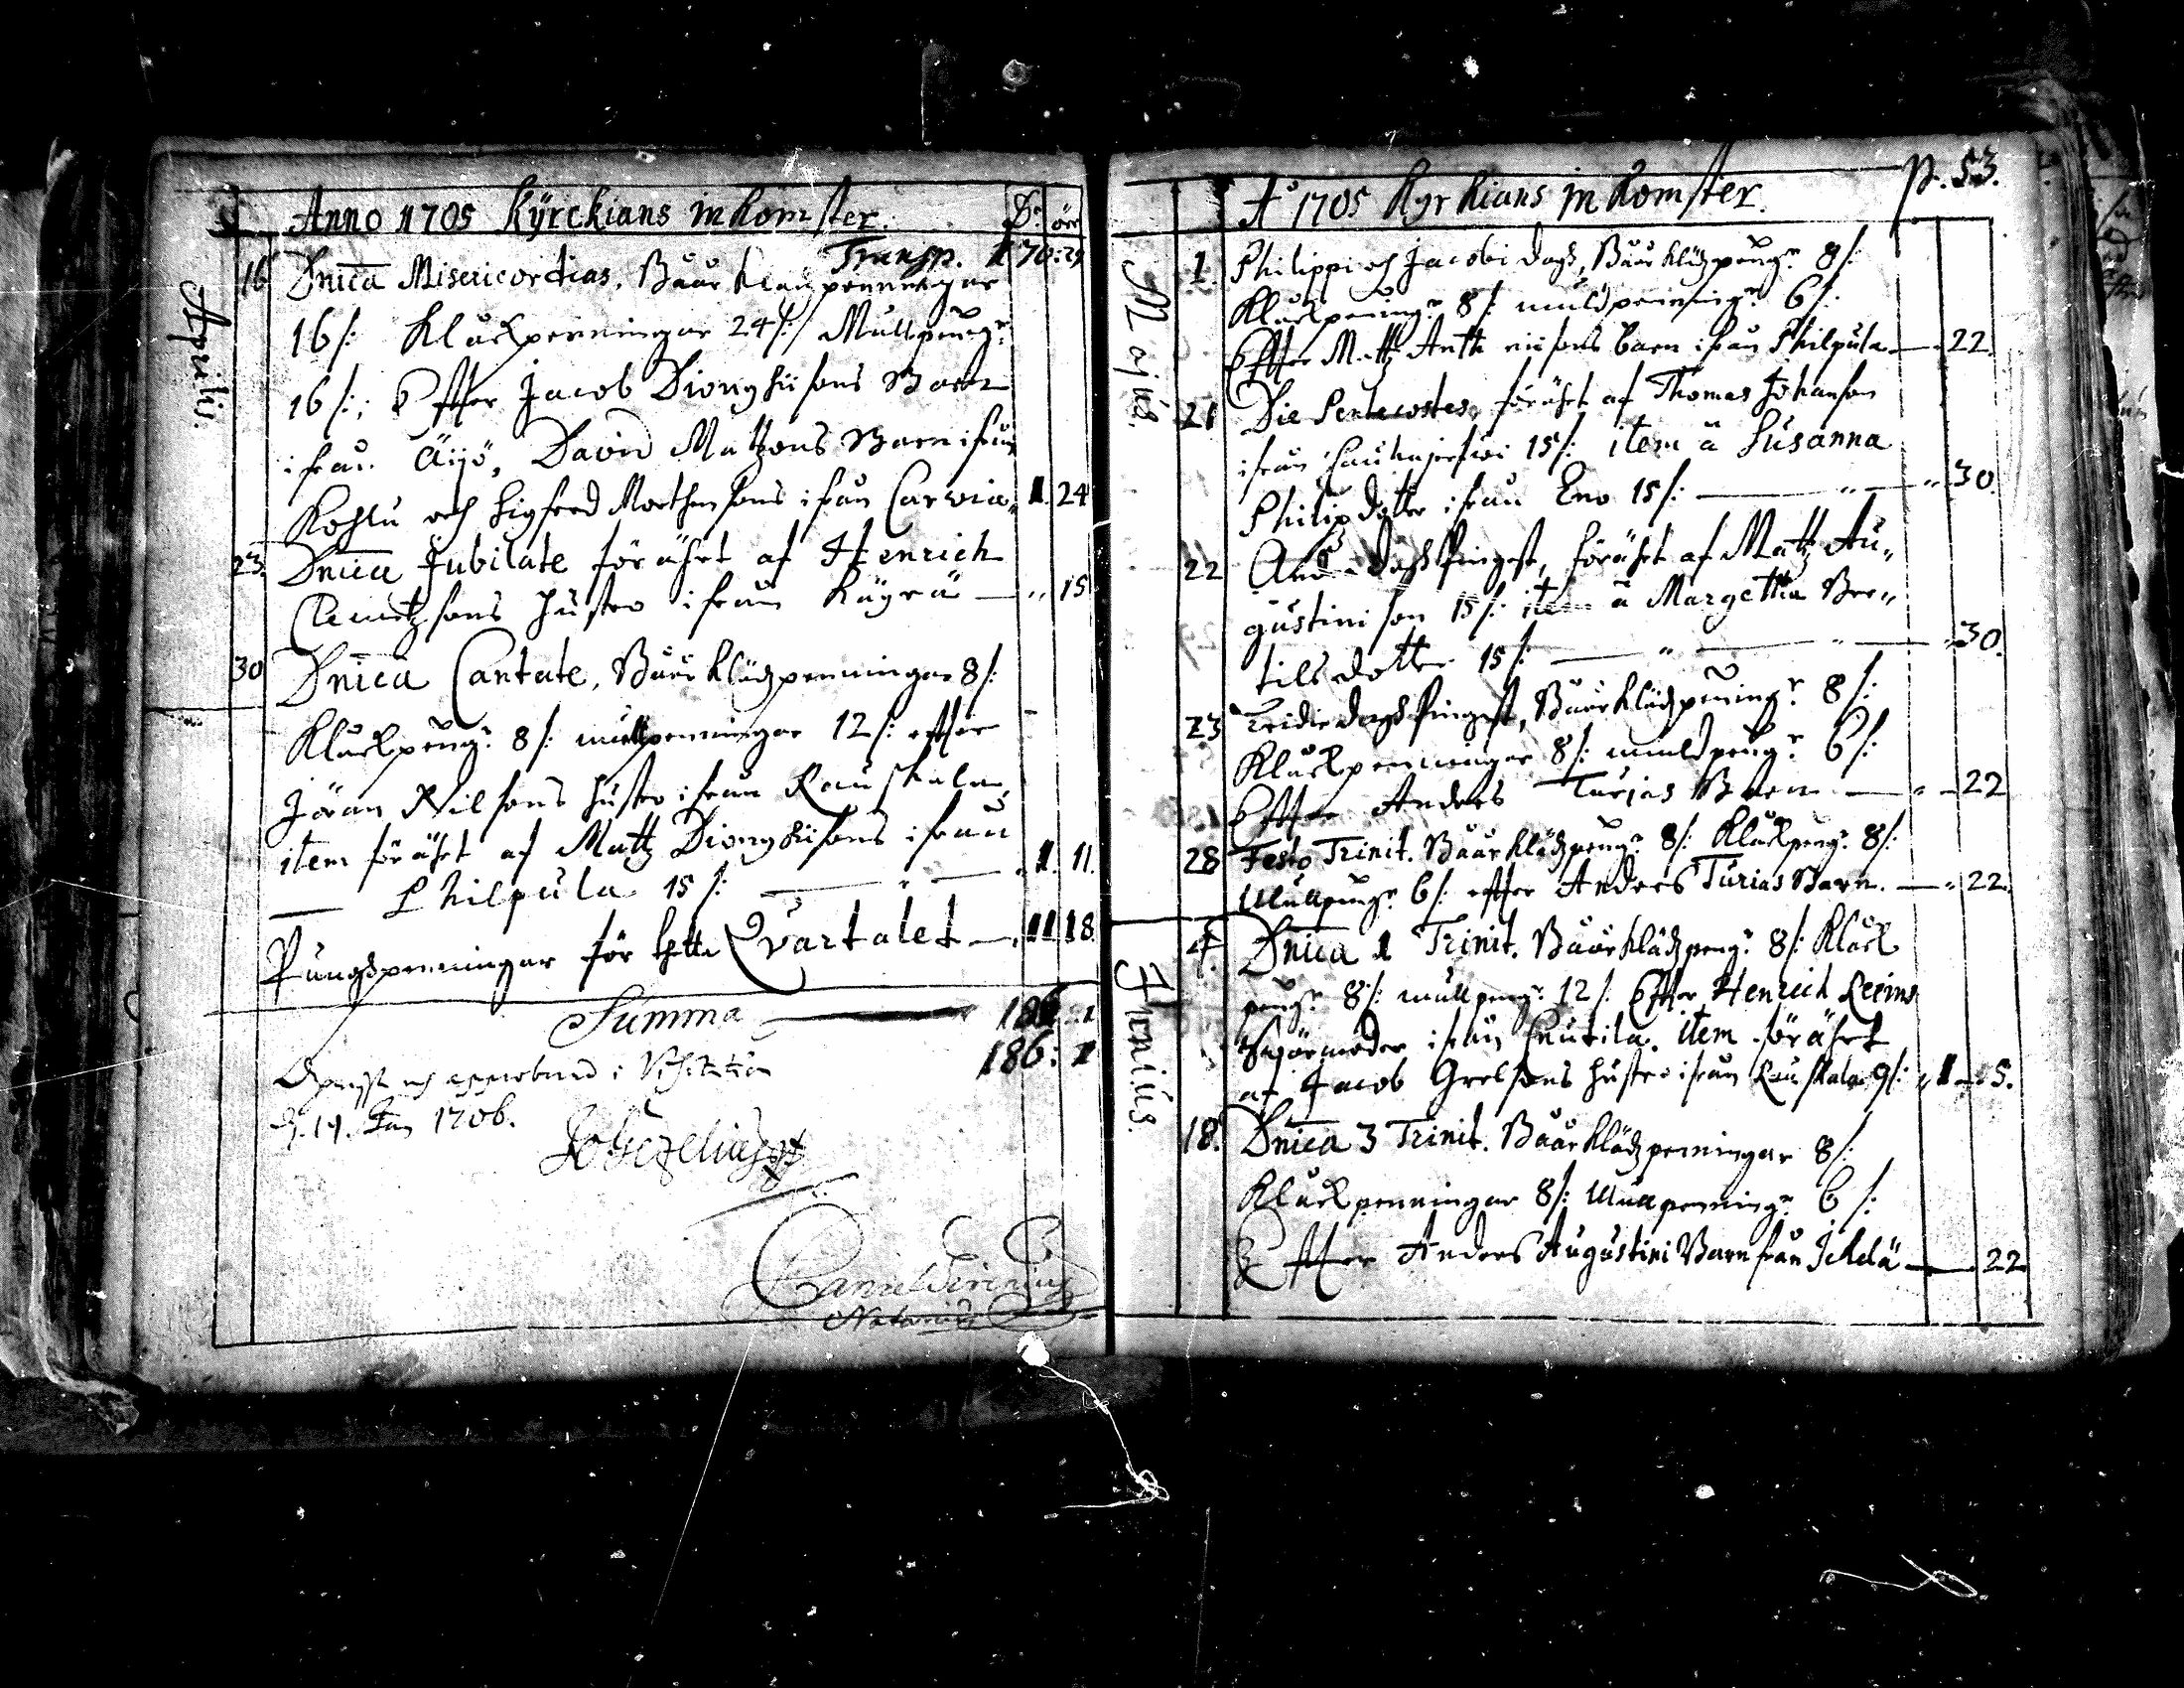 Anno 1705 Kÿrckians inkomster. Dr. öre
Transp. 170:29
Aprilis.
16 Dnica Misericordias. Båårklädzpenningar
16 /: Kluckpenningar 24 /: Mullpengr
16 /:; Effter Jacob Dionysii sons Barn
ifrån Äijö, David Matzons Barn ifrån
Kohlu och Sigfred Morthensons ifrån Carvia 1. 24
23. Dnica Jubilate förährt af Henrich
Clemetzsons hustro ifrån Käyrä — " 15
30 Dnica Cantate, Båårklädzpenningar 8 /:
Kluckpengr 8 /: mullpenningar 12 /: effter
Jöran Nilsons hustro ifrån Rauskala
item förährt af Matz Dionysiisons ifrån
Philpula 15 /: — " — 1. 11.
Pungspenningar för thetta Qvartalet — 11 18.
Summa — 186:1
186:1
och approberad i Visitation
d. 19. Jan 1706.
Notarius
A:o 1705 Kyrkians inkomster. p. 53.
Majus.
1. Philippi och Jacobi dagh, Båårklädzpengr 8 /:
Kluckpeningr 8 /: muldpenningr 6 /:
Effter Matz Anth niisons barn ifrån Philpula — 22.
21 Die Pentecostes, förährt af Thomas Johanson
ifrån 15 /: item a Susanna
Philipz dotter ifrån Eno 15 /: — " — " 30.
22 And. dagh Pingest, förährt af Matz Au„
gustini son 15 /: item a Margetha Ber„
tils dotter 15 /: — " — " — " 30.
23 Tridie dagh Pingest, Båårklädzpeningr 8 /:
Kluckpenningar 8 /: muuldpengr 6 /:
Effter Anders Turjas Barn — " — 22
28 Festo Trinit. Båårklädzpengr 8 /: Kluckpengr 8 /:
Mullpengr 6 /: effter Anders Turias Barn. — " 22.
Junius.
4. Dnica 1 Trinit. Båårklädzpengr 8 /: Kluck
pengr 8 /: mullpengr 12 /: Effter Henrich Reims
Swärmoder ifrån Knutila. item förährt
af Jacob Grelsons hustro ifrån Rauskala 9 /: " 1 — 5.
18. Dnica 3 Trinit. Båårklädzpenningar 8 /:
Kluckpenningar 8 /: Mullpenningr 6 /:
Effter Anders Augustini Barn från Ickelä — 22